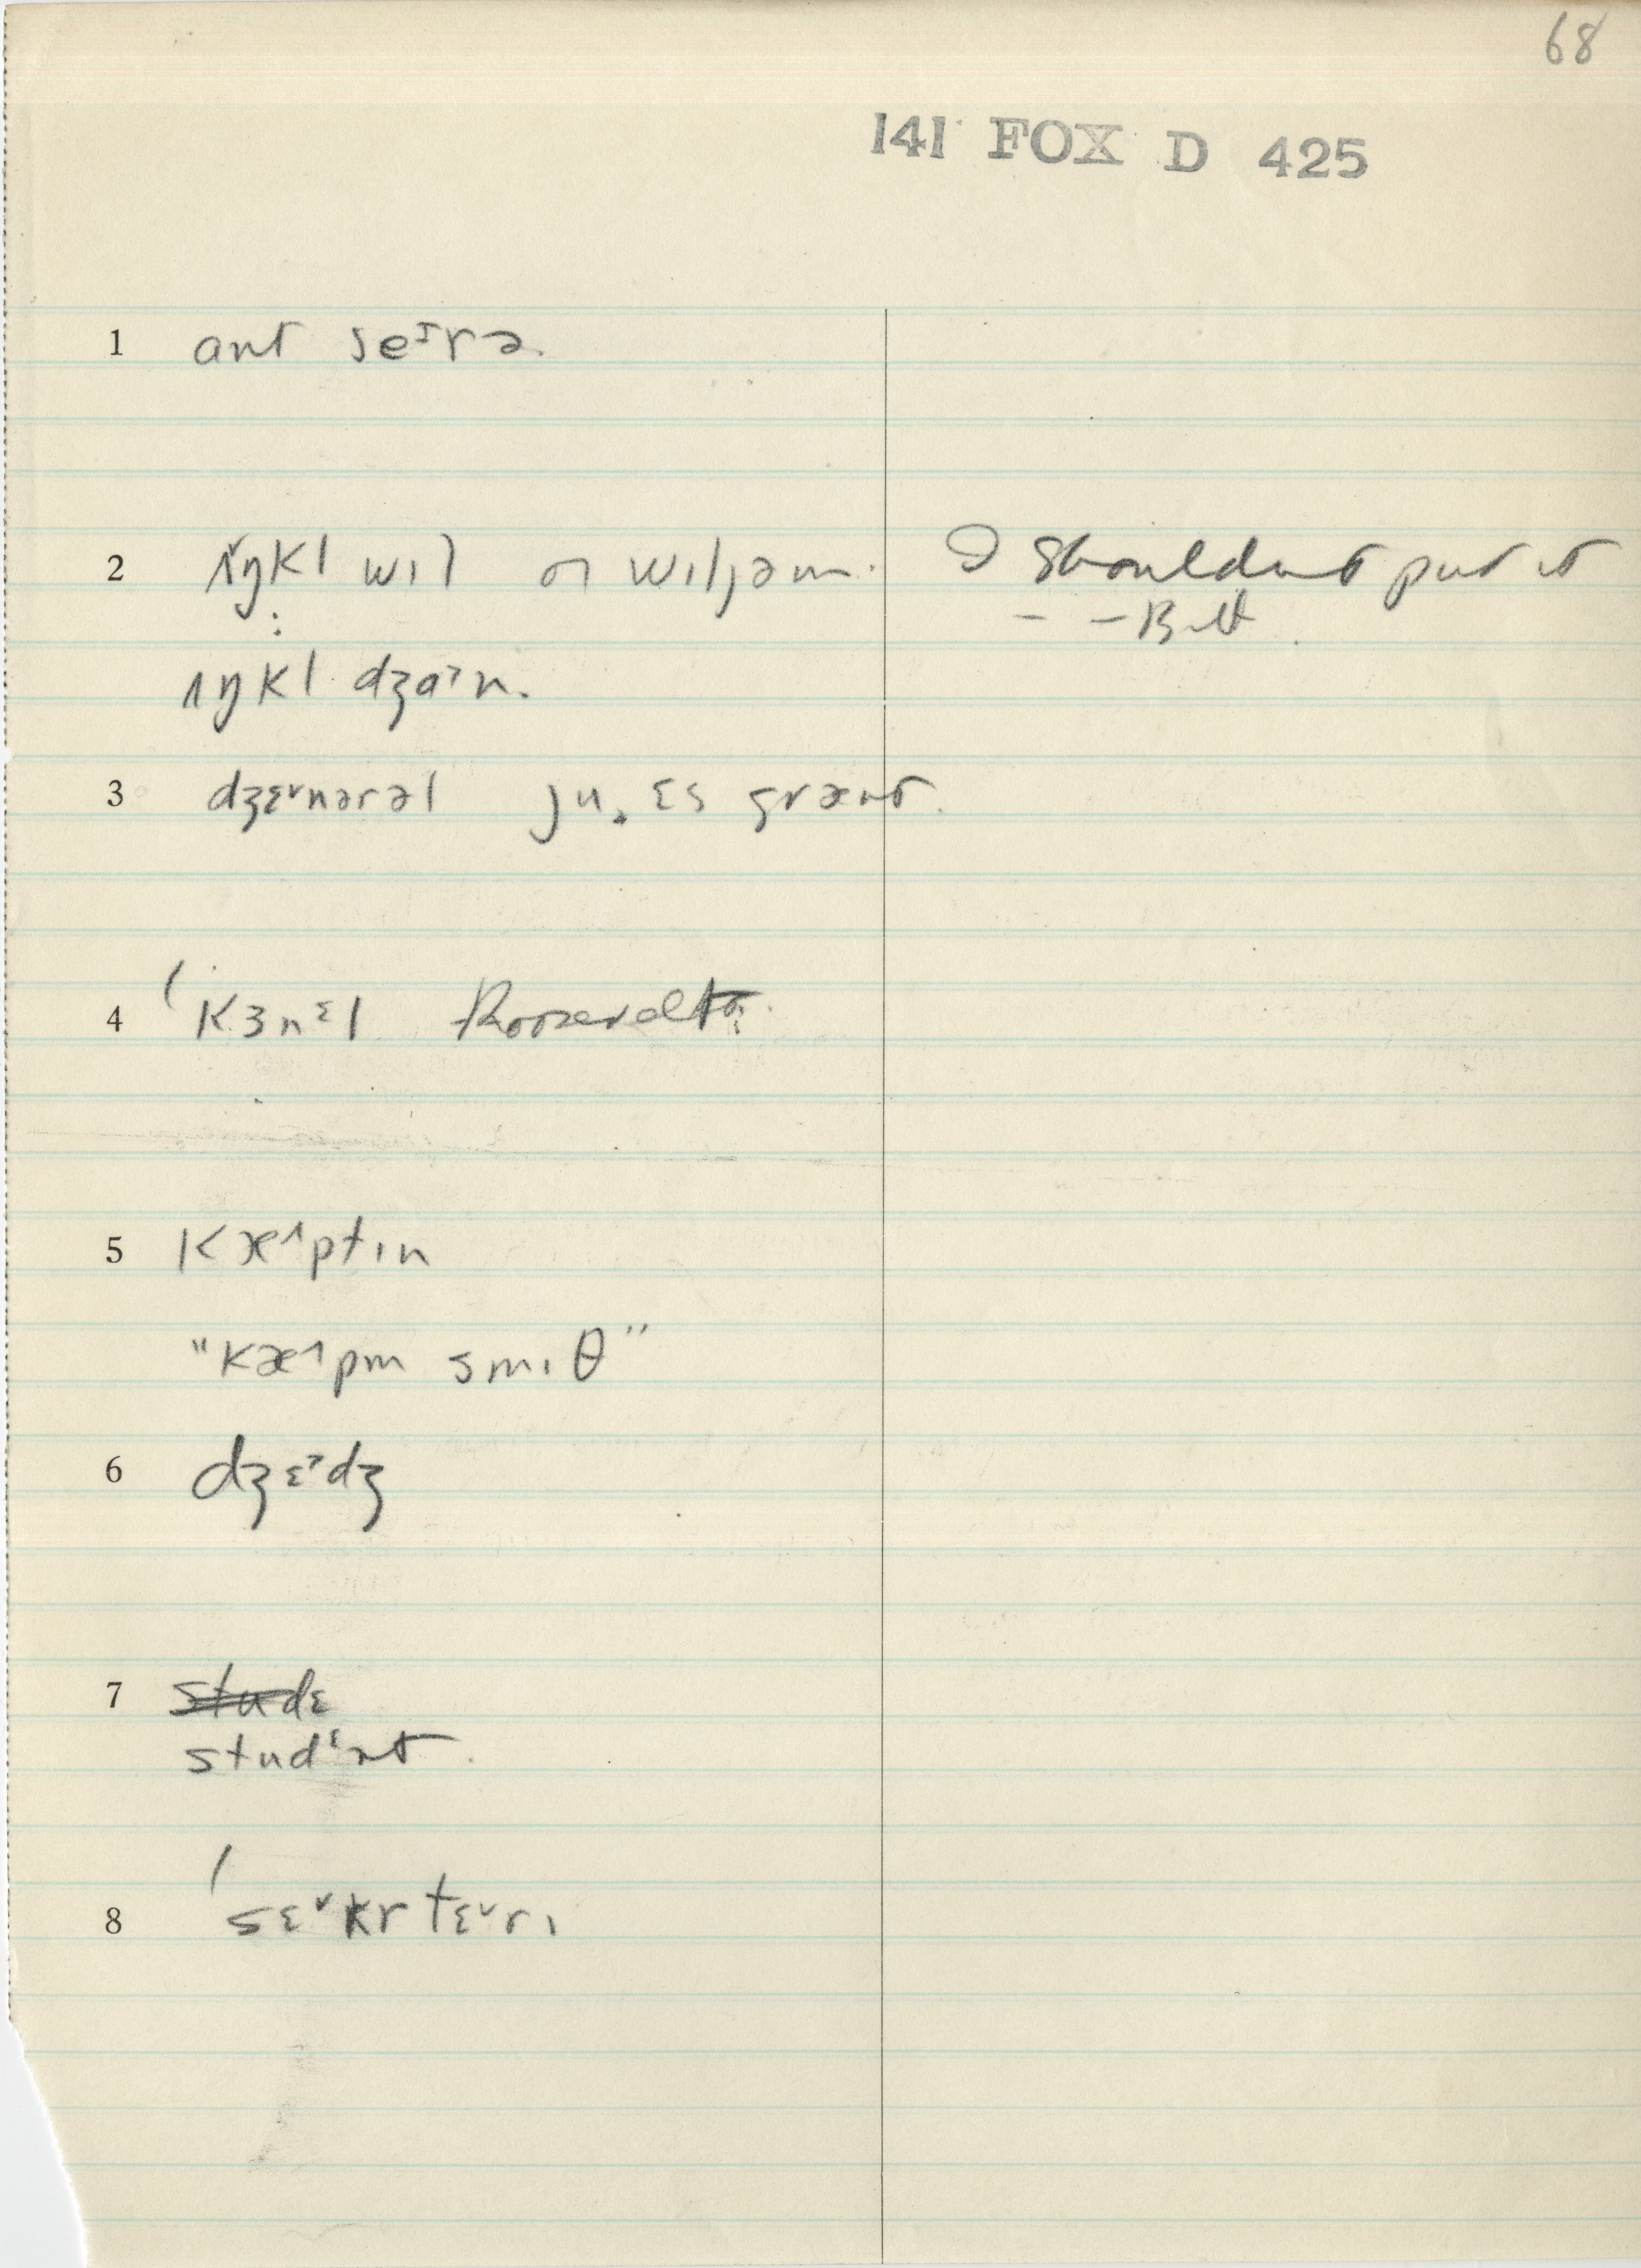 68
141 FOX D 425
1 ant seɪrə.
2 ʌŋkl wɪl or wɪljəm. I shouldnt put it
ʌŋkl dʒɑˀn.
3 dʒɛ˅nərəl ju. ɛs grænt.
4 ˈkɜnᵋl Roosevelt
5 kæ^ptɪn
"kæ^pm smɪθ"
6 dʒɛˀdʒ
7 studɛ
studᵋnt.
8 ˈsɛ˅krtɛ˅rɪ